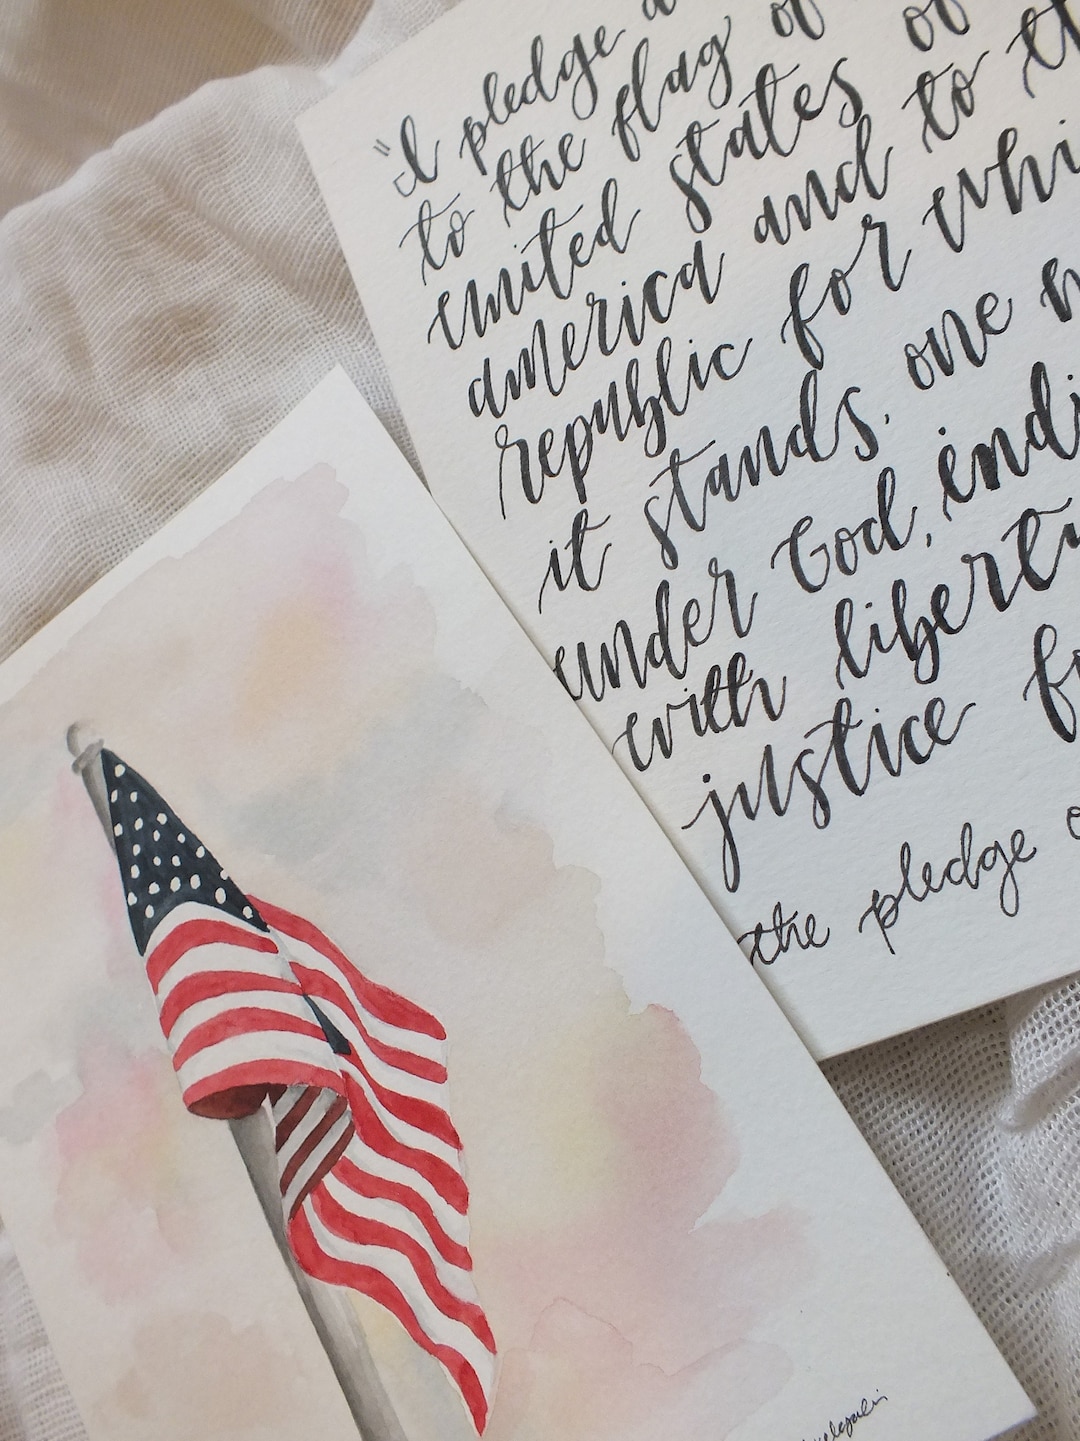 "I pledge
to the flag of
united states of
america and to
republic for
it stands, one
under God,
with liberty
justice
the pledge